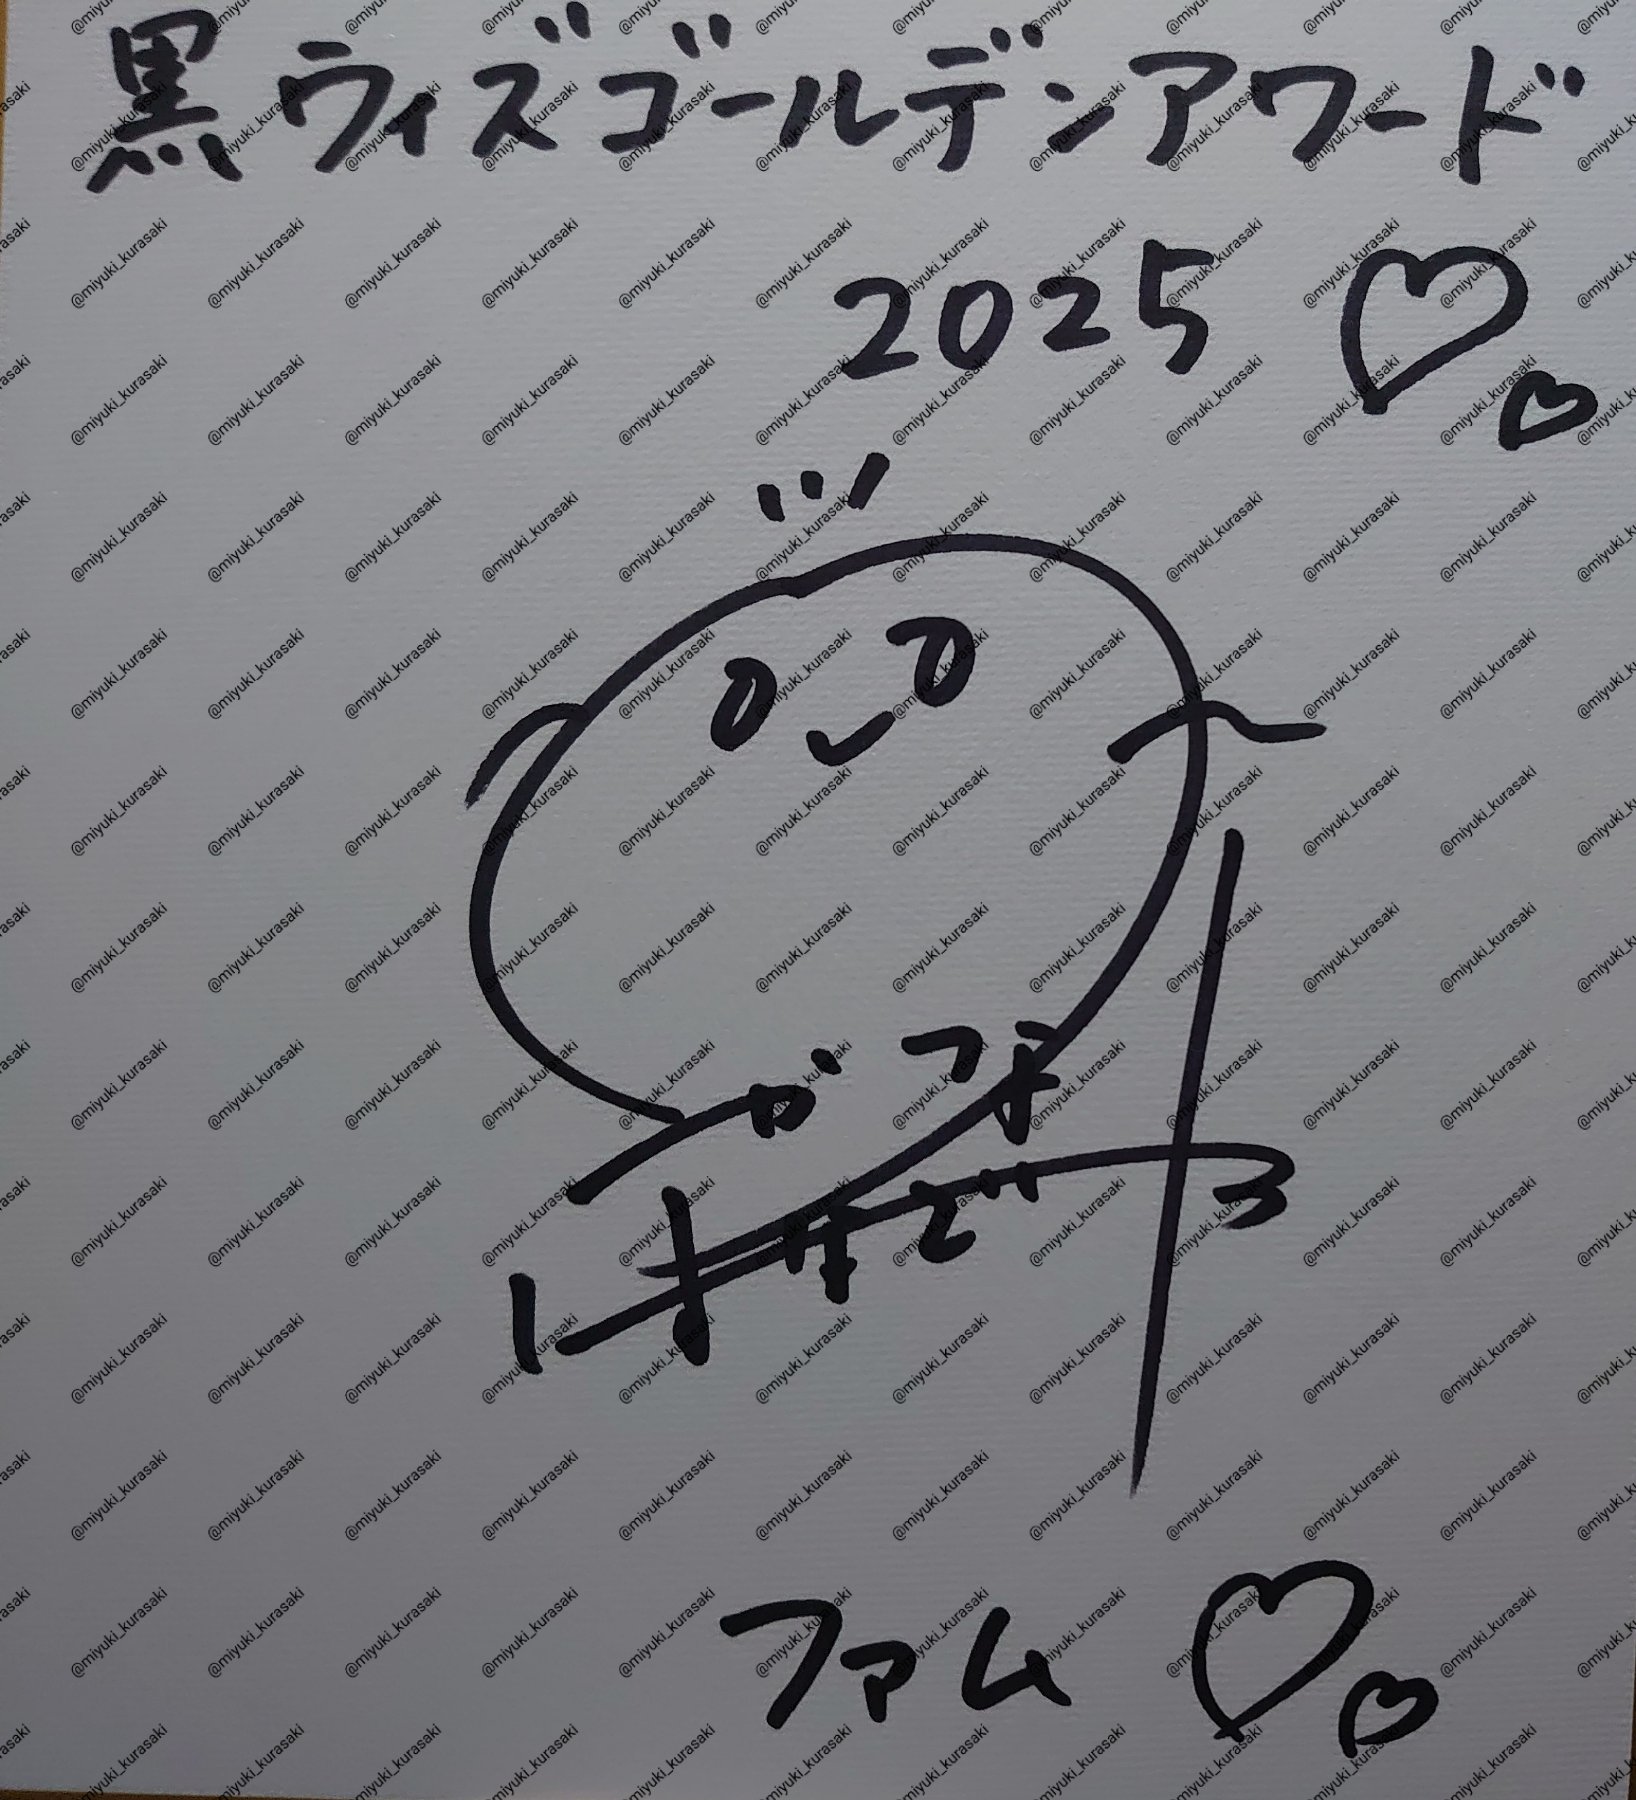 黒ウィズゴールデンアワード
2025
ファム
@miyuki_kurasaki